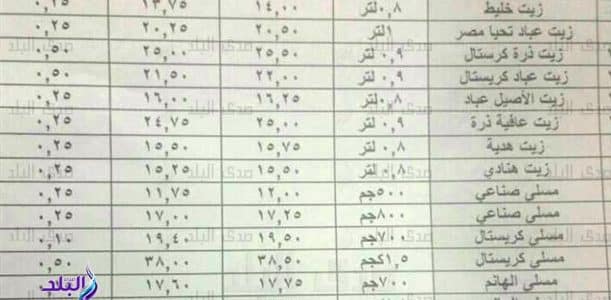 زيت خليط ٠,٨لتر ١٤,٠٠ ١٣,٧٥ ٠,٢٥
زيت عباد تحيا مصر ١لتر ٢٠,٥٠ ٢٠,٢٥ ٠,٢٥
زيت ذرة كرستال ٠,٩ لتر ٢٥,٥٠ ٢٥,٠٠ ٠,٥٠
زيت عباد كريستال ٠,٩ لتر ٢٢,٠٠ ٢١,٥٠ ٠,٥٠
زيت الأصيل عباد ٠,٨ لتر ١٦,٢٥ ١٦,٠٠ ٠,٢٥
زيت عافية ذرة ٠,٩ لتر ٢٥,٠٠ ٢٤,٧٥ ٠,٢٥
زيت هدية ٠,٨ لتر ١٥,٧٥ ١٥,٥٠ ٠,٢٥
زيت هنادي ٠,٨ لتر ١٥,٥٠ ١٥,٢٥ ٠,٢٥
مسلى صناعي ٥٠٠جم ١٢,٠٠ ١١,٧٥ ٠,٢٥
مسلى صناعي ٨٠٠جم ١٧,٢٥ ١٧,٠٠ ٠,٢٥
مسلى كريستال ٧٠٠جم ١٩,٥٠ ١٩,٤٠ ٠,١٠
مسلى كريستال ١,٥كجم ٣٨,٥٠ ٣٨,٠٠ ٠,٥٠
مسلى الهانم ٧٠٠جم ١٧,٧٥ ١٧,٦٠
صدى البلد